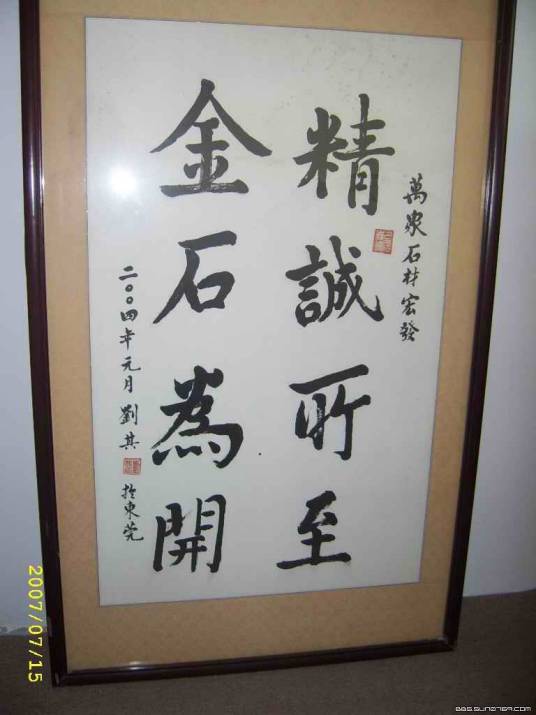 萬眾石材宏發
精誠所至
金石為開
二〇〇四年元月劉其
於東莞
2007/07/15